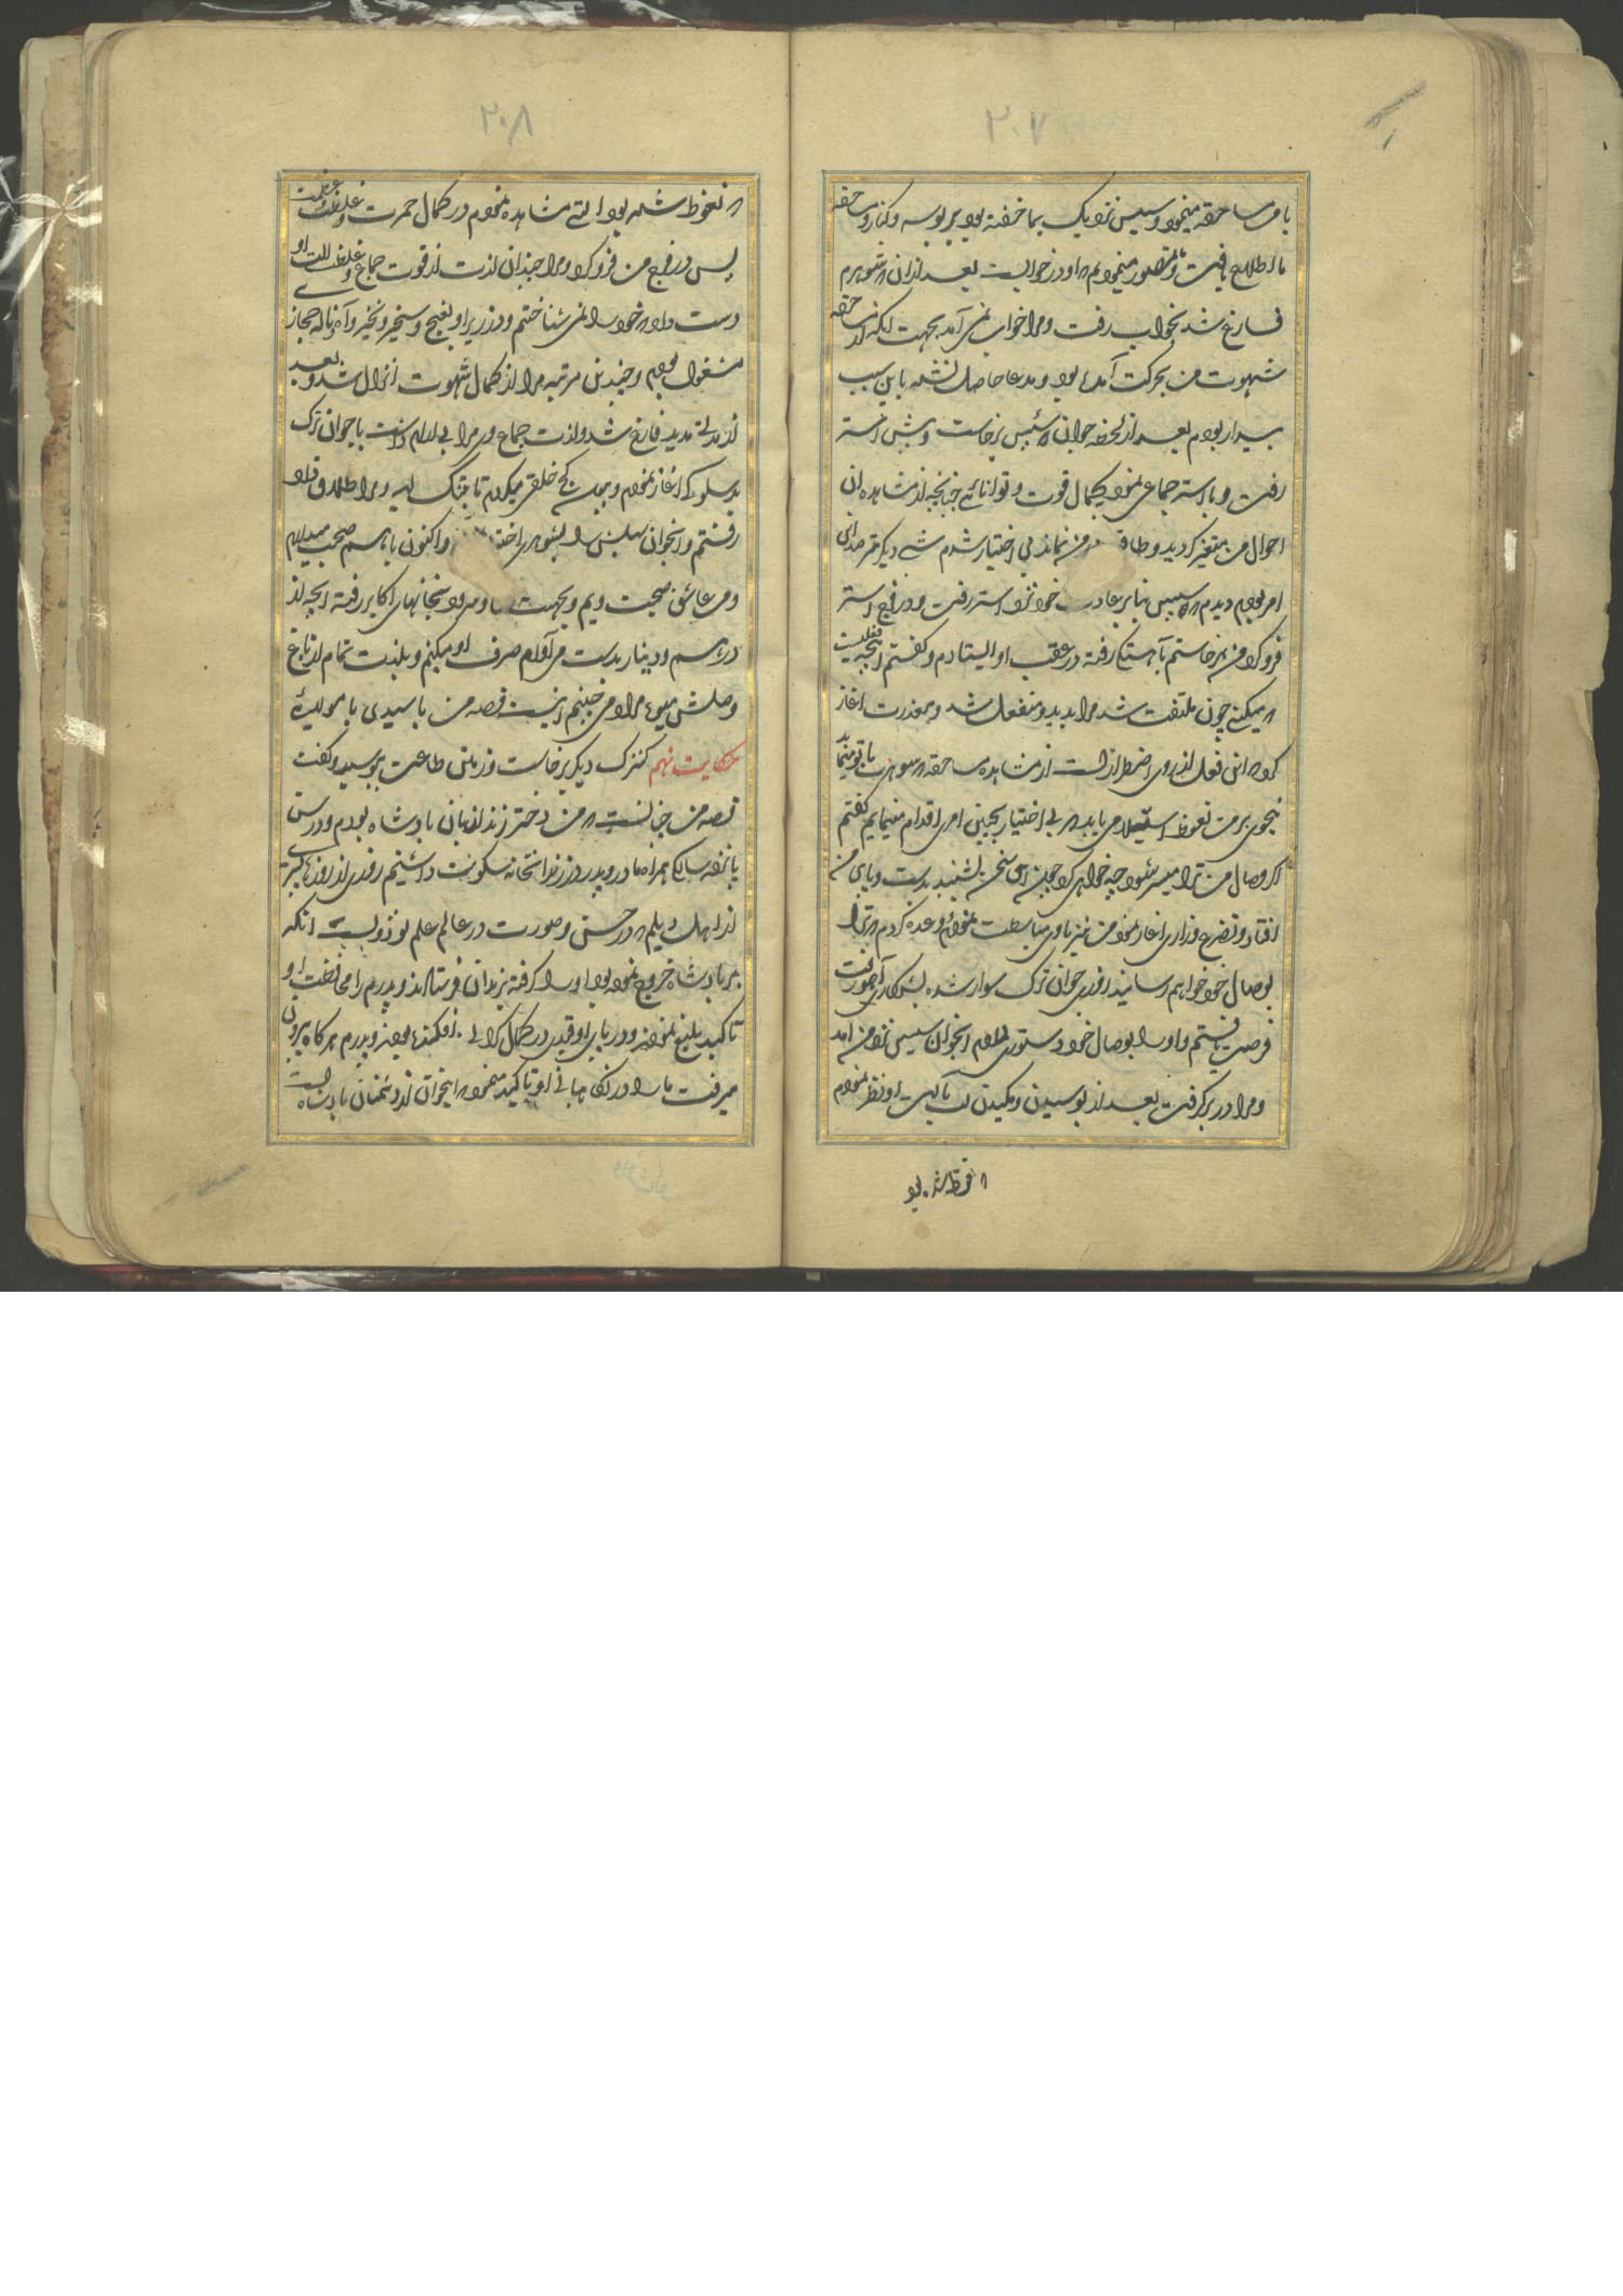 ۲۰۷
با من مساحقه مینمود و سیس نزدیک بما خفته بود بر بوسه و کنار و مساحقه
ما اطلاع یافت و ما تصور مینمودیم که او در خوابست بعد از آن که شوهرم
فارغ شد بخواب رفت و مرا خواب نمی آمد بجهت آنکه از مساحقه
شهوت من بحرکت آمده بود و مدعا حاصل نشده باین سبب
بیدار بودم بعد از لحظه جوان سئیس برخاست و پیش استر
رفت و با استر جماعی نمود بکمال قوت و توانائی چنانچه از مشاهده آن
احوال من متغیر گردید و طاقة در من نماند بی اختیار شدم شب دیگر مترصد این
امر بودم دیدم که سیس بنابر عادت خود نزد استر رفت و در فرج استر
فرو کرد من برخاستم آهسته رفته در عقب او ایستادم و گفتم این چه فعلیست
که میکنی چون ملتفت شد مرا بدید و منفعل شد و بمعذرت آغاز
کرد که این فعل از روی اضطرار است از مشاهده مساحقه که شوهرت با تو مینماید
بنحوی بر من نعوظ استیلا می یابد که بی اختیار بچنین امری اقدام مینمایم گفتم
اگر وصال من ترا میسر شود چه خواهی کرد چون این سخن بشنید بدست و پای من
افتاد و تضرع و زاری آغاز نمود من نیز با وی مباسطت نمودم وعده کردم که ترا
بوصال خود خواهم رسانید روزی جوان ترک سوار شده بشکار رفت
فرصت یافتم و او را بوصال خود دستوری دادم آن جوان سیس نزد من آمد
و مرا در بر گرفت بعد از بوسیدن و مکیدن لب بآلت او نظر نمودم
که نعوظ شده بود
۲۰۸
که نعوظ شده بود آلتی مشاهده نمودم در کمال حمرت و غلظت و عظمت
پس در فرج من فرو کرد و مرا چندان لذت از قوت جماع و غلظت آلت او
دست داد که خود را نمی شناختم و در زیر او بغنج و شخیر و نخیر و آه و ناله حجازی
مشغول بودم و چندین مرتبه مرا از کمال شهوت انزال شد و بعد
از مدتی مدید فارغ شد و لذت جماع وی مرا بی آرام داشت با جوان ترک
بدسلوکی آغاز نمودم و کج خلقی میکردم تا بتنگ آمد و مرا طلاق داد
رفتم و آن جوان سایس را بشوهری اختیار و اکنون با هم صحبت میداریم
و من عاشق صحبت ویم و بجهت او مرود بخانهای اکابر رفته آنچه از
درهم و دینار بدست می آورم صرف او میکنم و بلذت تمام از باغ
وصلش میوه مراد می چینم اینست قصه من یا سیدی یا مولای
حکایت نهم کنیزک دیگر برخاست و زمین طاعت ببوسید و گفت
قصه من چنانست که من دختر زندانبان پادشاه بودم و در سن
پانزده سالگی همراه مادر و پدر در زندانخانه سکونت داشتیم روزی از روزها میری
از اهل دیلم که در حسن و صورت در عالم علم بود و بسبب آنکه
بر پادشاه خروج نموده بود او را گرفته بزندان فرستادند و پدرم را محافظت او
تاکید بلیغ نمودند و در پای او قیدی در کمال گرانی افکنده بودند و پدرم هرگاه بیرون
میرفت ما را در نگاهبانی او تاکید مینمود که این جوان از دشمنان پادشاه است